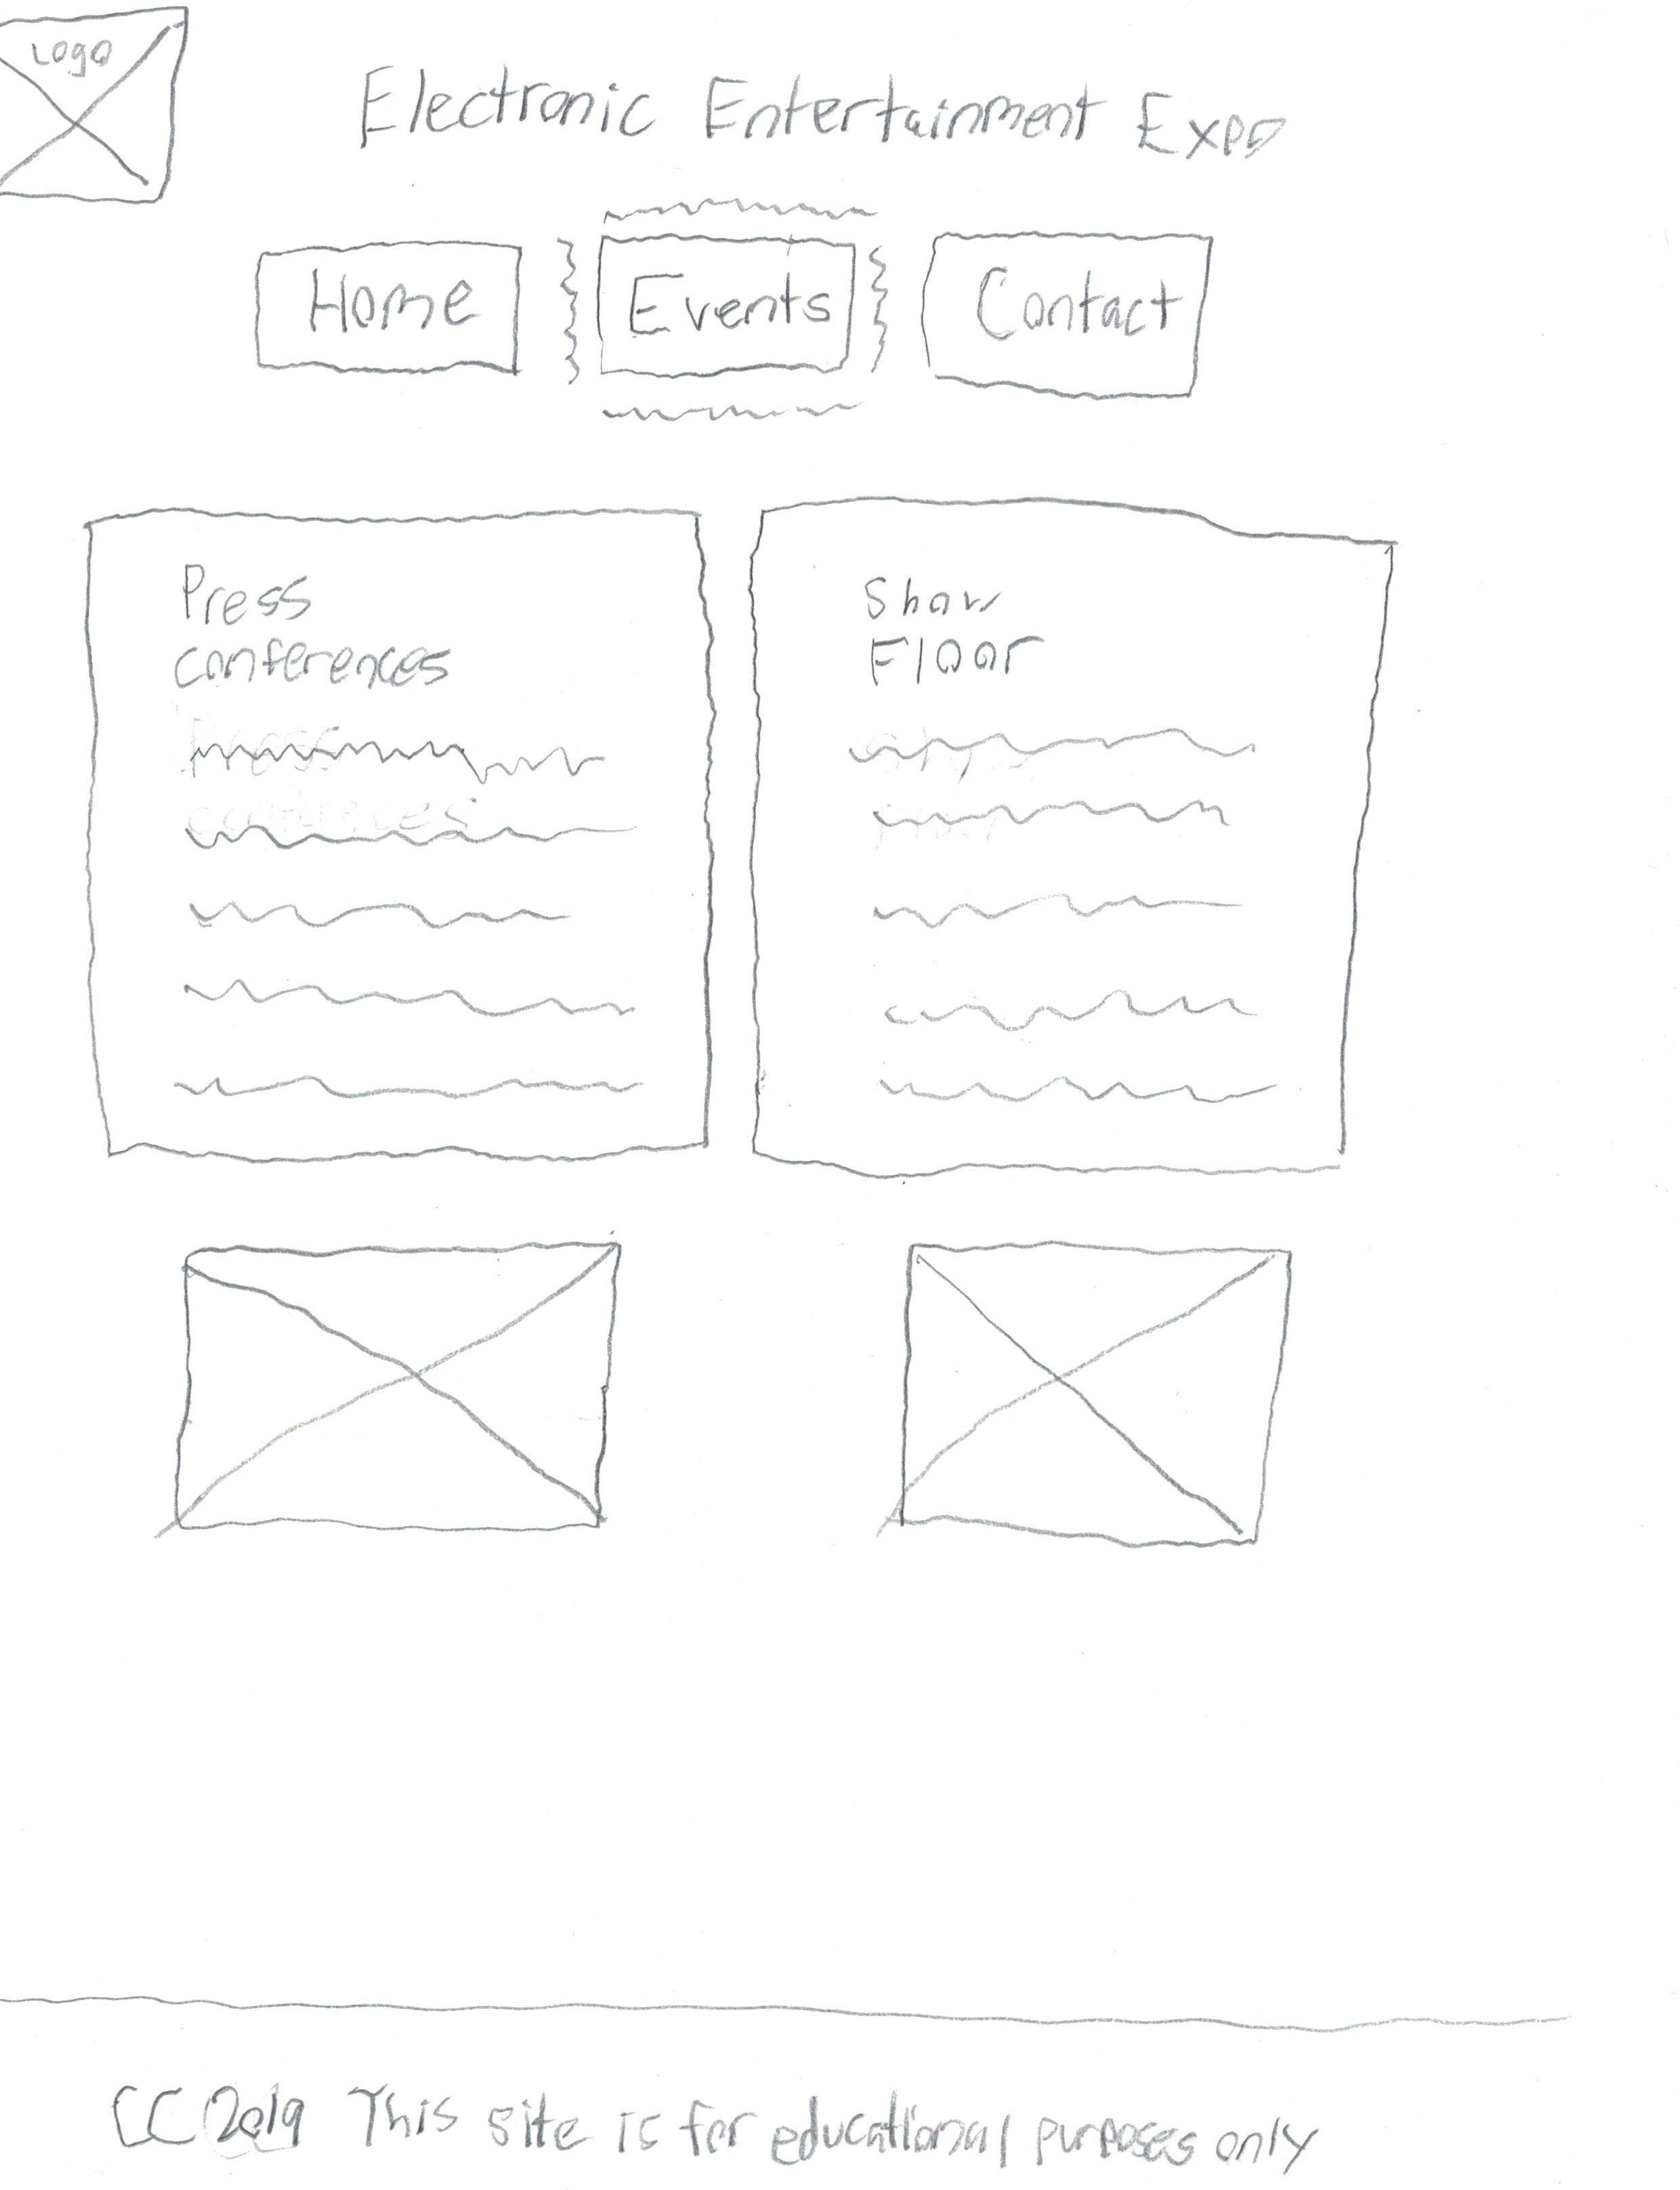 Logo
Electronic Entertainment Expo
Home Events Contact
Press
conferences
Show
Floor
CC 2019 This site is for educational purposes only